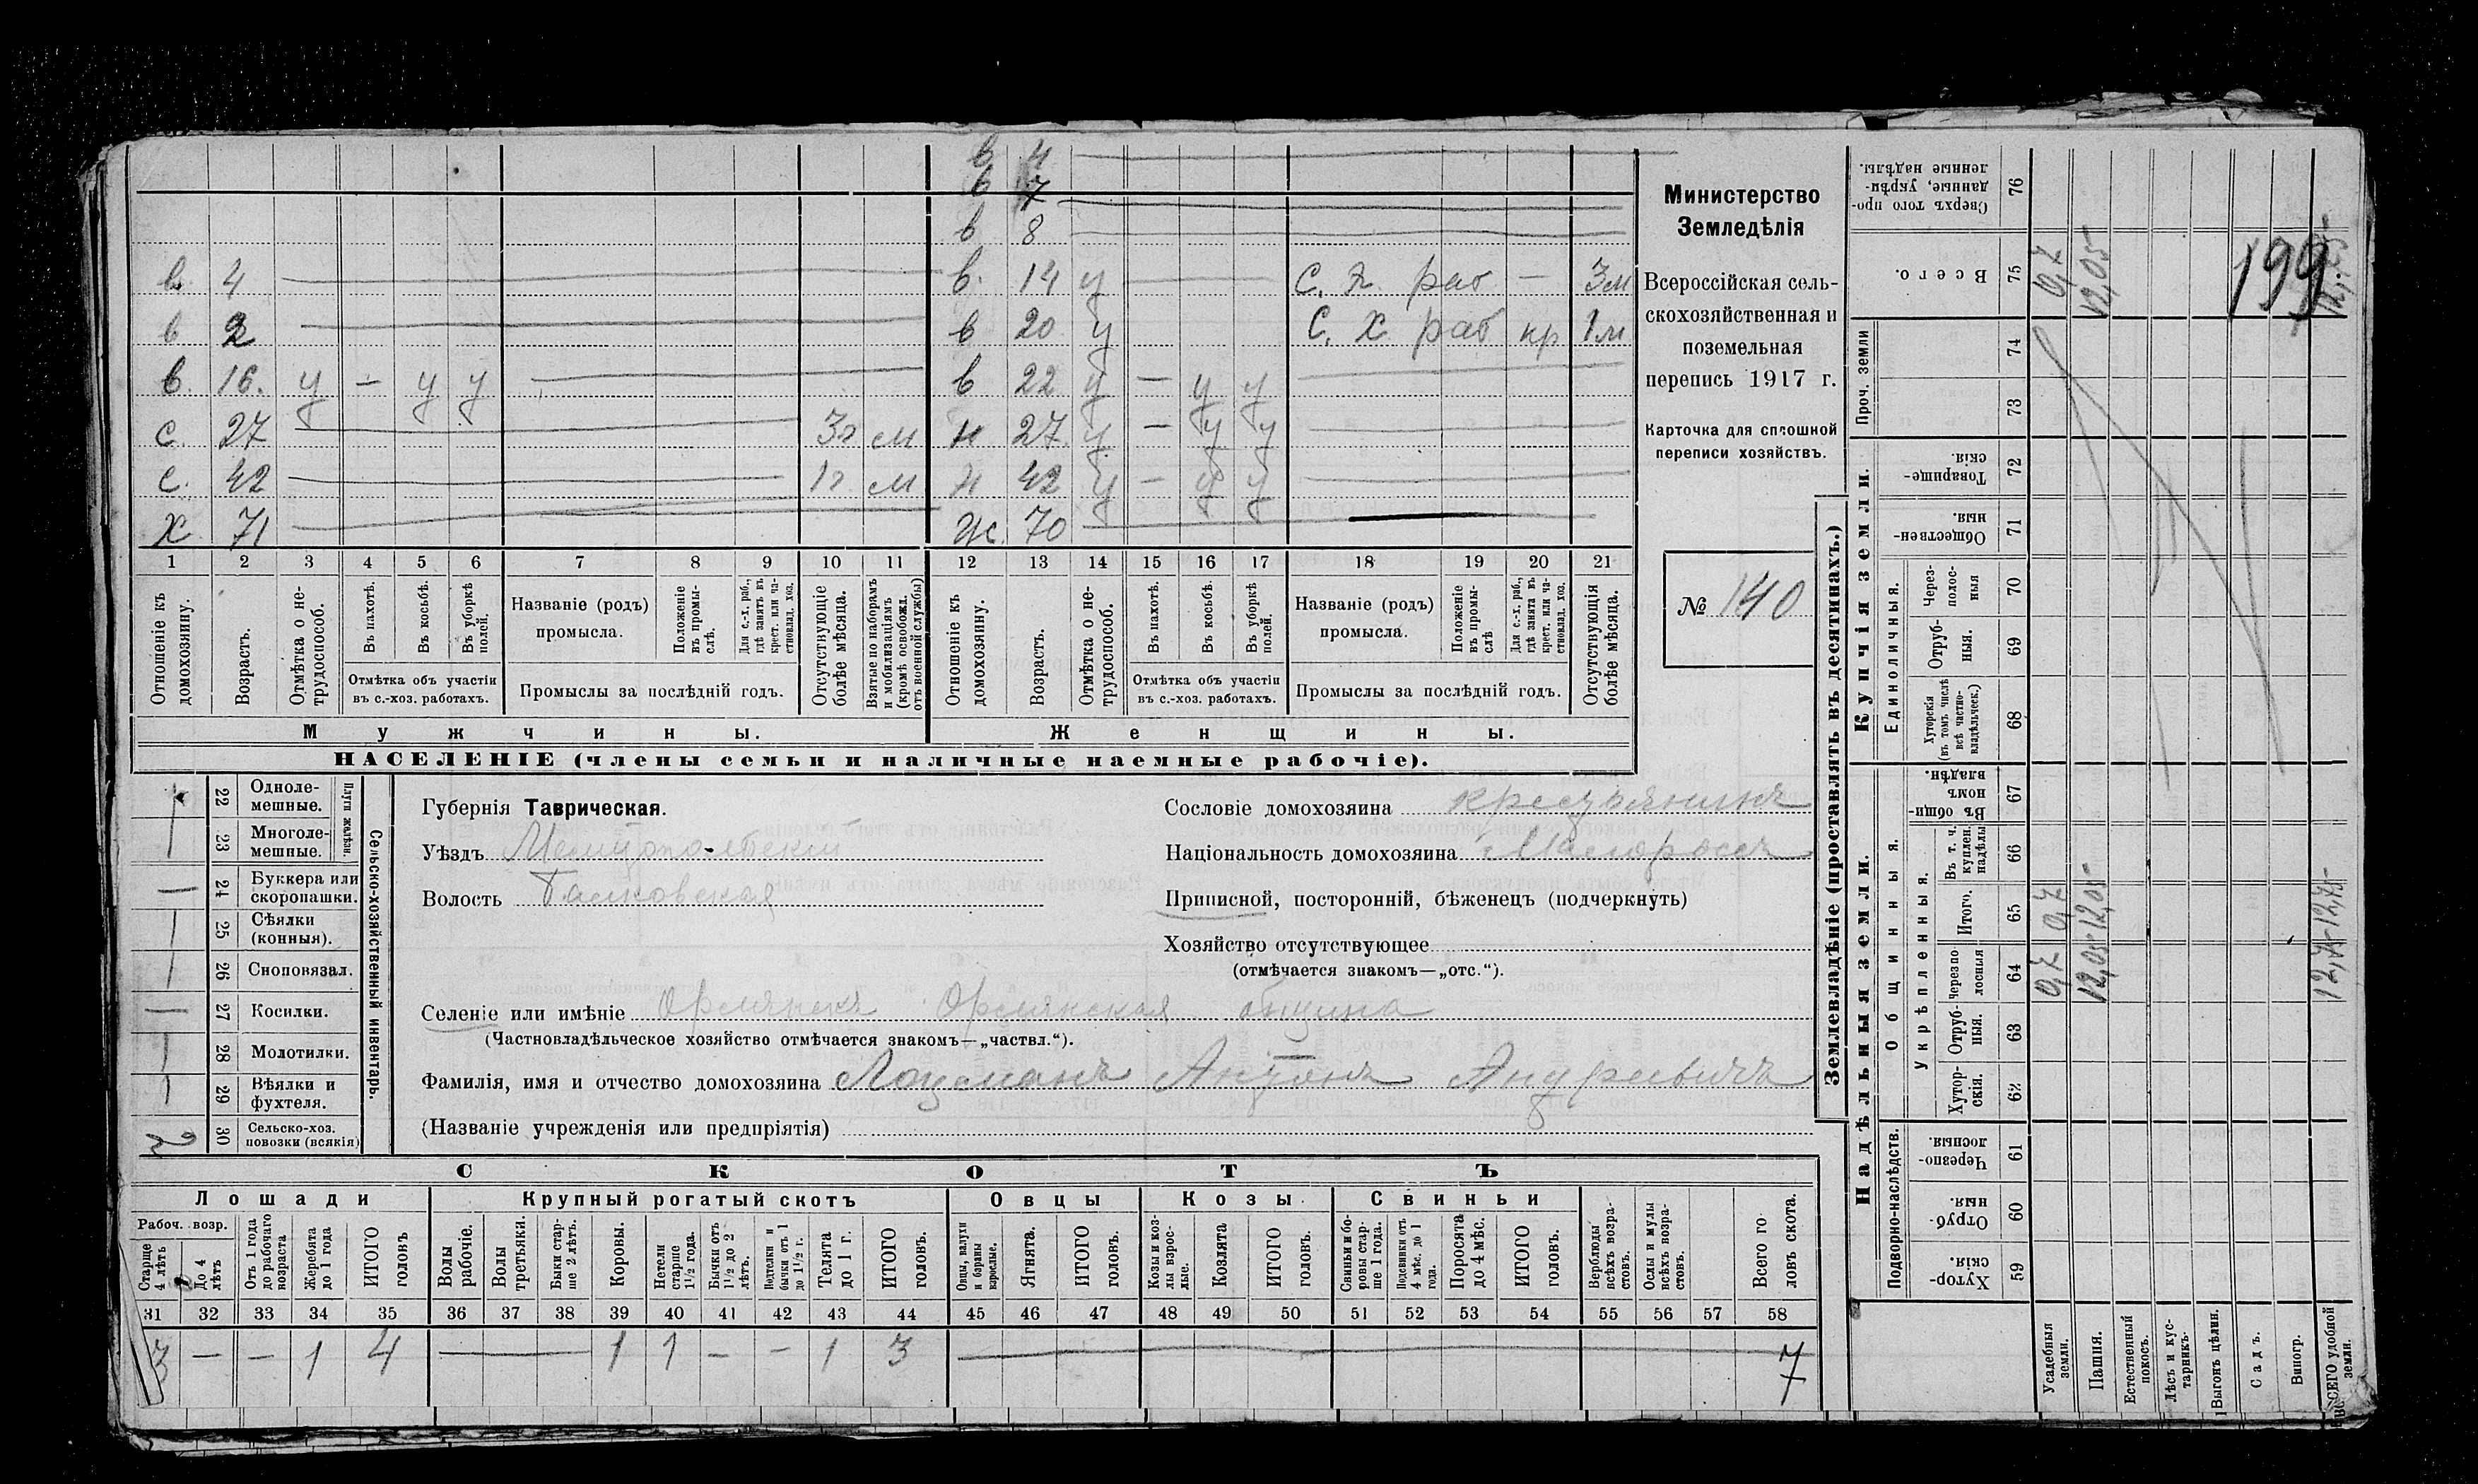 в 4
в 7
в 8
в. 4 в. 14 у С. х. раб — 3м
в 2 в 20 у С. х раб кр 1м
в. 16. у — у у в 22 у — у у
с. 27 3г м н 27 у — у у
с. 42 1г м н 42 у — у у
х 71 ж. 70
1 2 3 4 5 6 7 8 9 10 11 12 13 14 15 16 17 18 19 20 21
Отношеніе къ домохозяину.
Возрастъ.
Отмѣтка о не-трудоспособ.
Въ пахотѣ.
Въ косьбѣ.
Въ уборкѣ полей.
Отмѣтка объ участіи
въ с.-хоз. работахъ.
Названіе (родъ)
промысла.
Положеніе въ промы-слѣ.
Для с.-х. раб., гдѣ занятъ въ крест. или ча-стновлад. хоз.
Промыслы за послѣдній годъ.
Отсутствующіе болѣе мѣсяца.
Взятые по наборамъ и мобилизаціямъ (кромѣ освобожд. отъ военной службы)
Отношеніе къ домохозяину.
Возрастъ.
Отмѣтка о не-трудоспособ.
Въ пахотѣ.
Въ косьбѣ.
Въ уборкѣ полей.
Отмѣтка объ участіи
въ с.-хоз. работахъ.
Названіе (родъ)
промысла.
Положеніе въ промы-слѣ
Для с.-х. раб., гдѣ занята въ крест. или ча-стновлад. хоз.
Промыслы за послѣдній годъ.
Отсутствующія болѣе мѣсяца.
Мужчины. Женщины.
НАСЕЛЕНІЕ (члены семьи и наличные наемные рабочіе).
Министерство
Земледѣлія
Всероссійская сель-
скохозяйственная и
поземельная
перепись 1917 г.
Карточка для сплошной
переписи хозяйствъ.
№ 140
22 Одноле-мешные.
1 23 Многоле-мешные.
Плуги желѣзн.
— 24 Буккера или скоропашки.
1 25 Сѣялки (конныя).
1 26 Сноповязал.
— 27 Косилки.
1 28 Молотилки.
1 29 Вѣялки и фухтеля.
2 30 Сельско-хоз. повозки (всякія)
Сельско-хозяйственный инвентарь.
Губернія Таврическая.
Уѣздъ Мелитопольскій
Волость Балковская
Сословіе домохозяина крестьянинъ
Національность домохозяина Малороссъ
Приписной, посторонній, бѣженецъ (подчеркнуть)
Хозяйство отсутствующее
(отмѣчается знакомъ—„отс.“).
Селеніе или имѣніе Орлянскъ Орлянская община
(Частновладѣльческое хозяйство отмѣчается знакомъ—„частвл.“).
Фамилія, имя и отчество домохозяина Лоцманъ Антонъ Андреевичъ
(Названіе учрежденія или предпріятія)
СКОТЪ
Лошади Крупный рогатый скотъ Овцы Козы Свиньи
Рабоч. возр.
Старше 4 лѣтъ
До 4 лѣтъ
Отъ 1 года до рабочаго возраста
Жеребята до 1 года
ИТОГО головъ
Волы рабочіе.
Волы третьяки.
Быки стар-ше 2 лѣтъ.
Коровы.
Нетели старше 1½ года.
Бычки отъ 1½ до 2 лѣтъ.
Подтелки и бычки отъ 1 до 1½ г.
Телята до 1 г.
ИТОГО головъ.
Овцы, валухи и бараны взрослые.
Ягнята.
ИТОГО головъ.
Козы и коз-лы взрос-лые.
Козлята
ИТОГО головъ.
Свиньи и бо-ровы стар-ше 1 года.
Подсвинки отъ 4 мѣс. до 1 года.
Поросята до 4 мѣс.
ИТОГО головъ.
Верблюды всѣхъ возра-стовъ.
Ослы и мулы всѣхъ возра-стовъ.
Всего го-ловъ скота.
31 32 33 34 35 36 37 38 39 40 41 42 43 44 45 46 47 48 49 50 51 52 53 54 55 56 57 58
3 — — 1 4 — 1 1 — — 1 3 — 7
Землевладѣніе (проставлять въ десятинахъ.)
Надѣльныя земли. Купчія земли.
Проч. земли
Подворно-наслѣдств.
Общинныя.
Укрѣпленныя.
Единоличныя.
Хутор-скія. 59
Отруб-ныя. 60
Черезпо-лосныя. 61
Хутор-скія. 62
Отруб-ныя. 63
Черезпо-лосныя 64
Итого. 65
Въ т. ч. куплен. надѣлы 66
Въ общи-номъ владѣн. 67
Хуторскія (въ томъ числѣ всѣ частно-владѣльческ.) 68
Отруб-ныя. 69
Через-полос-ныя 70
Обществен-ныя. 71
Товарище-скія. 72
73
74
Всего. 75
Сверхъ того про-данные, укрѣп-ленные надѣлы. 76
Усадебныя земли. 0,7 0,7 0,7
Пашня. 12,05 12,05 12,05
Естественный покосъ.
Лѣсъ и кус-тарникъ.
Выгонъ цѣлин.
Садъ.
Виногр.
ВСЕГО удобной земли. 12,75 12,75
199